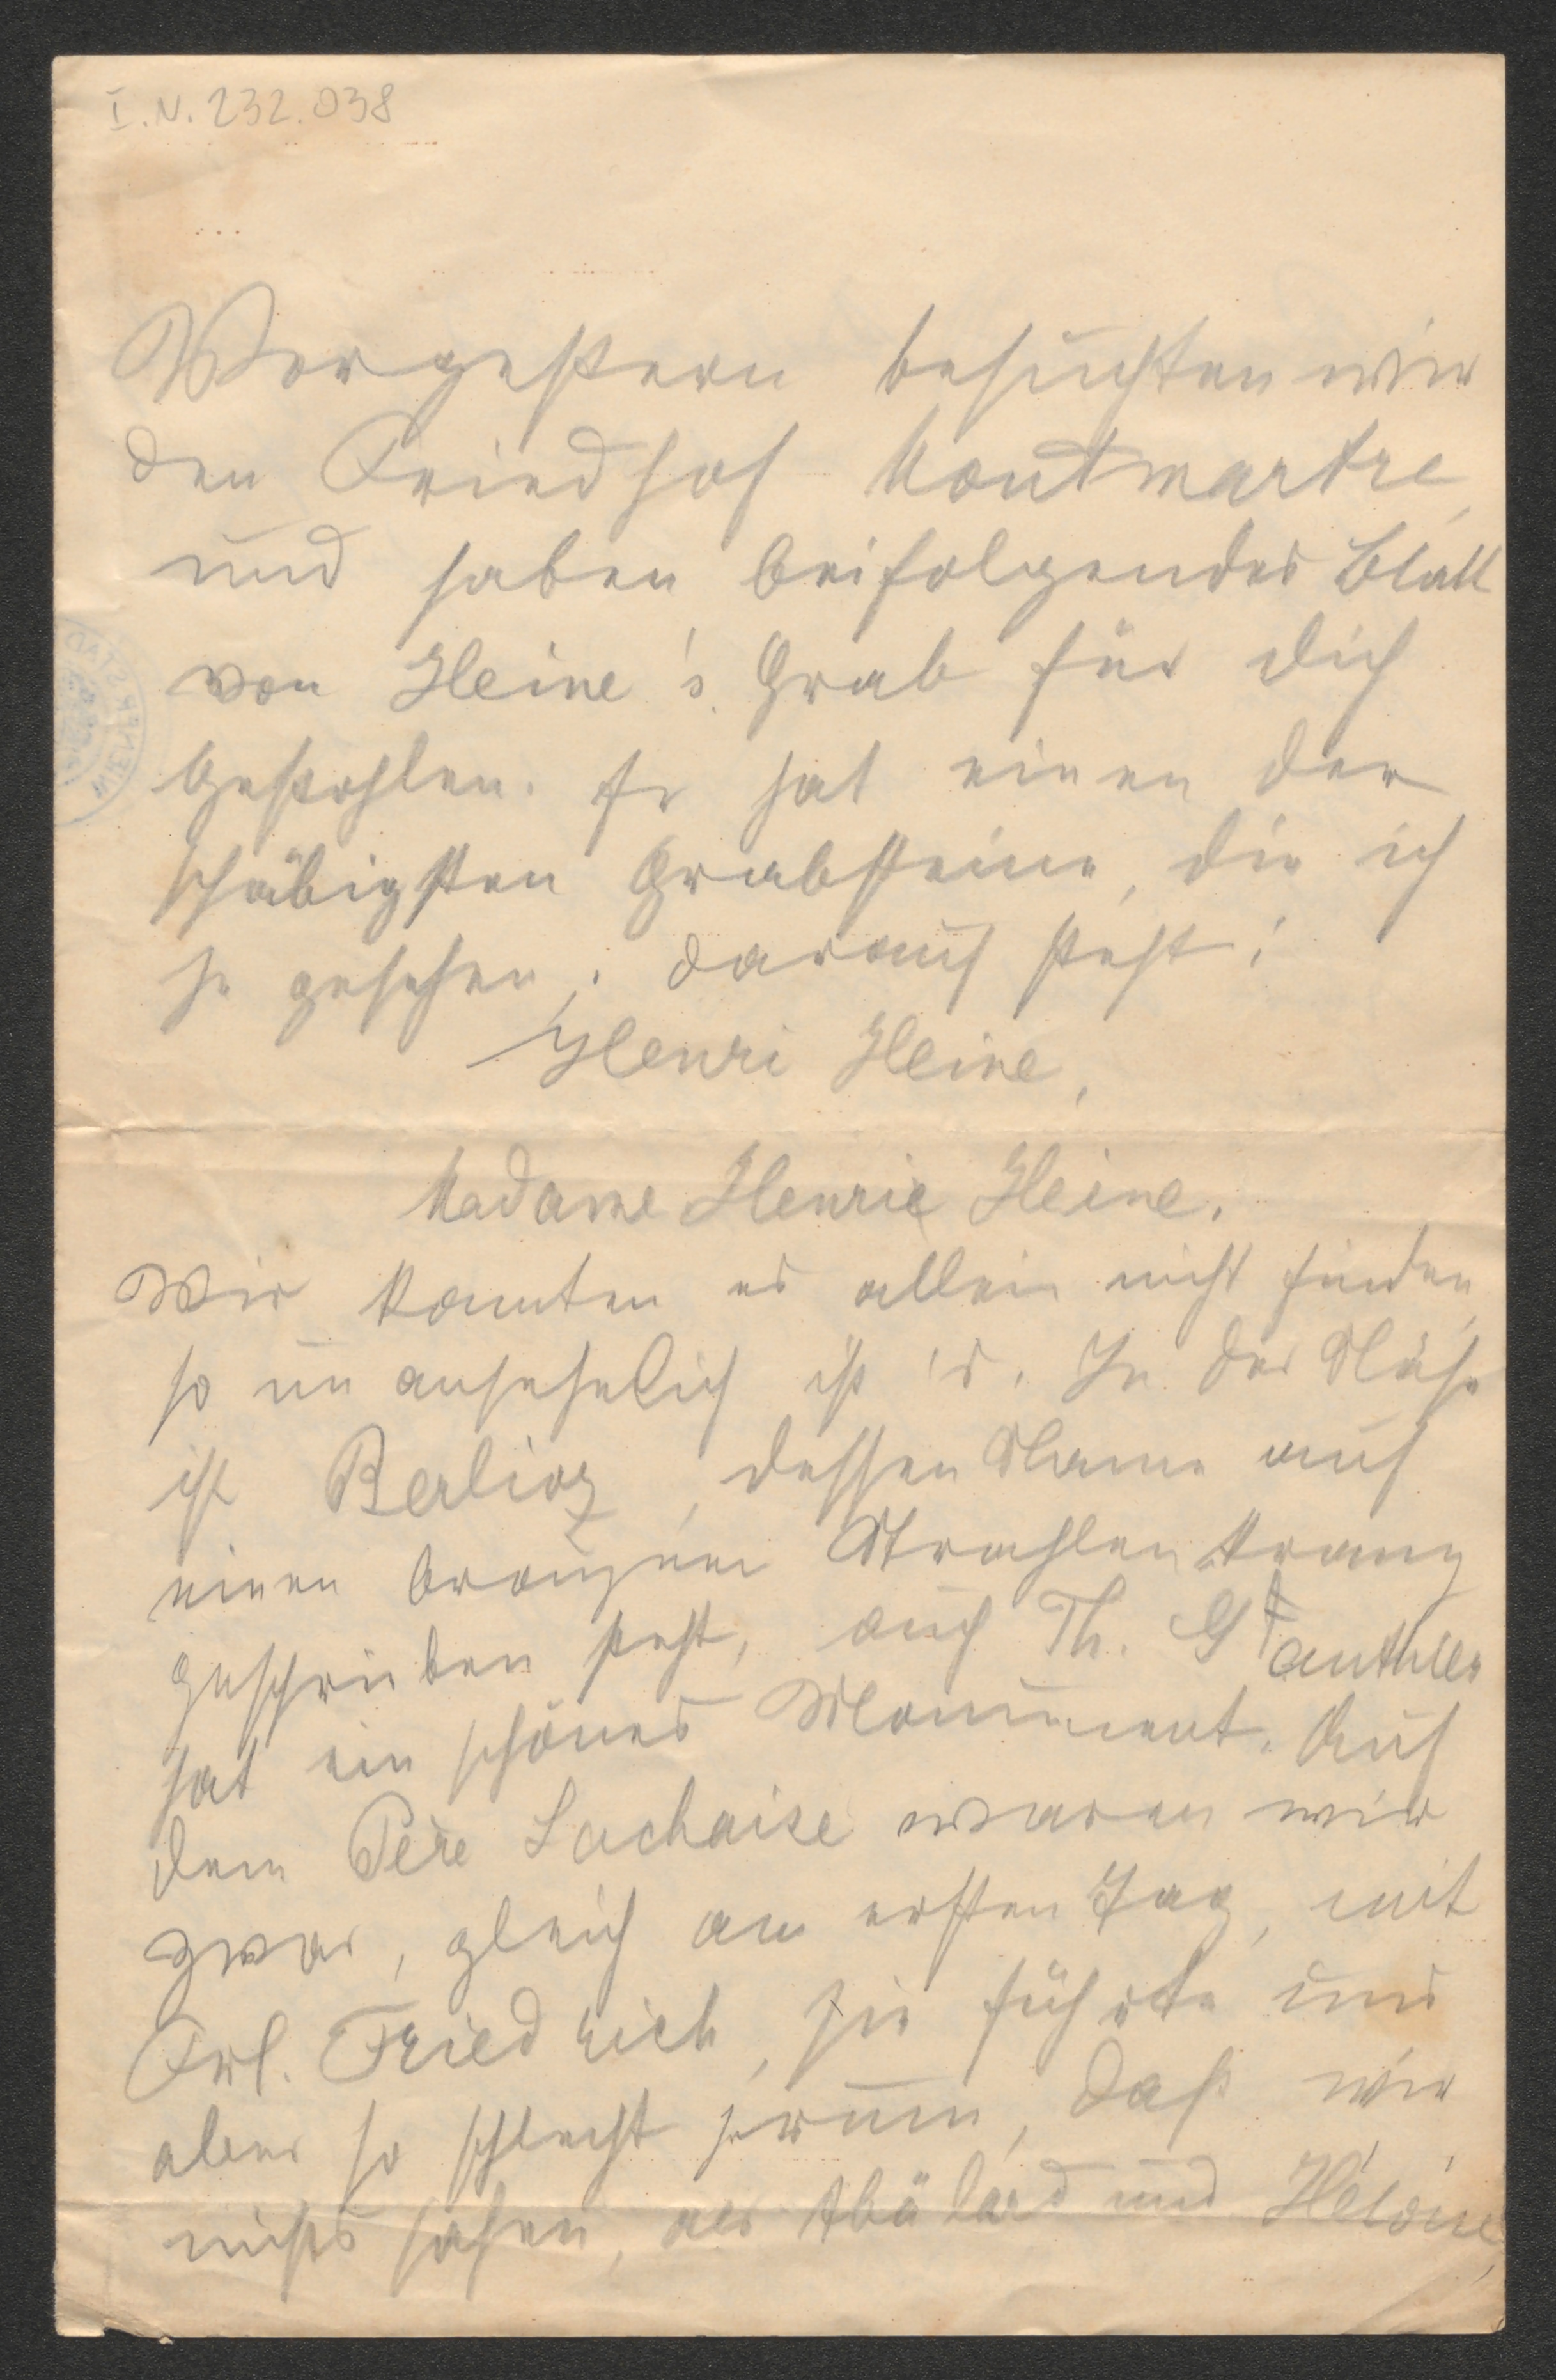 I.N. 232.038
Vorgestern besuchten wir
den Friedhof Montmartre,
und haben beifolgendes Blatt
von Heine's Grab für dich
gestohlen. Er hat einen der
schäbigsten Grabsteine, die ich
je gesehen; darauf steht:
Henri Heine,
Madame Henrie Heine.
Wir konnten es allein nicht finden,
so unansehnlich ist's. In der Nähe
ist Berlioz, dessen Name auf
einen bronzenen Strahlenkranz
geschrieben steht, auch Th. Gauthier
hat ein schönes Monument. Auf
dem Père Lachaise waren wir
zwar, gleich am ersten Tag, mit
Frl. Friedrich, sie führte uns
aber so schlecht herum, daß wir
nichts sahen, als Abälard und Héloise,